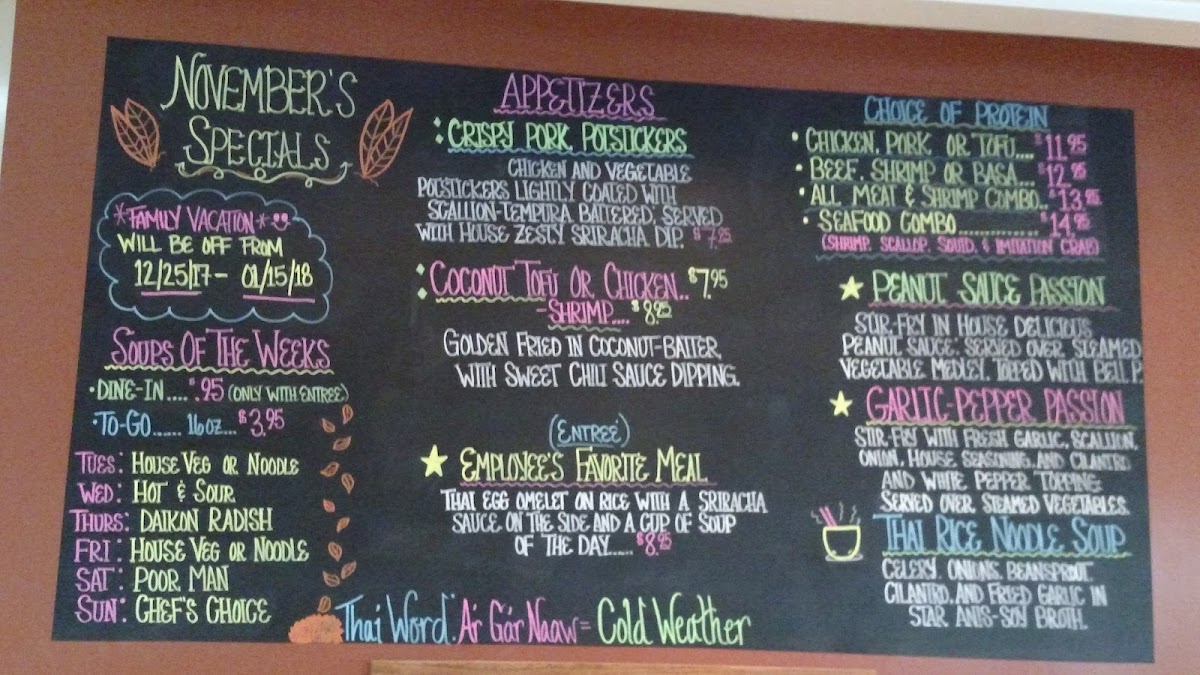 NOVEMBER'S
SPECIALS
*FAMILY VACATION*
WILL BE OFF FROM
12/25/17 - 01/15/18
SOUPS OF THE WEEKS
• DINE-IN .... $.95 (ONLY WITH ENTREE)
• TO-GO...... 16oz... $3.95
TUES: HOUSE VEG OR NOODLE
WED: HOT & SOUR
THURS: DAIKON RADISH
FRI: HOUSE VEG OR NOODLE
SAT: POOR MAN
SUN: CHEF'S CHOICE
APPETIZERS
CRISPY PORK POTSTICKERS
CHICKEN AND VEGETABLE
POTSTICKERS LIGHTLY COATED WITH
SCALLION-TEMPURA BATTERED, SERVED
WITH HOUSE ZESTY SRIRACHA DIP. $7.95
COCONUT TOFU OR CHICKEN.. $7.95
- SHRIMP.... $8.95
GOLDEN FRIED IN COCONUT-BATTER,
WITH SWEET CHILI SAUCE DIPPING.
(ENTREE)
EMPLOYEE'S FAVORITE MEAL
THAI EGG OMELET ON RICE WITH A SRIRACHA
SAUCE ON THE SIDE AND A CUP OF SOUP
OF THE DAY..... $8.95
Thai Word: Ar Gar Naaw = Cold Weather
CHOICE OF PROTEIN
• CHICKEN, PORK OR TOFU.... $11.95
• BEEF, SHRIMP OR BASA... $12.95
• ALL MEAT & SHRIMP COMBO.. $13.95
• SEAFOOD COMBO .............. $14.95
(SHRIMP, SCALLOP, SQUID, & IMITATION CRAB)
PEANUT SAUCE PASSION
STIR-FRY IN HOUSE DELICIOUS
PEANUT SAUCE. SERVED OVER STEAMED
VEGETABLE MEDLEY. TOPPED WITH BELL P.
GARLIC-PEPPER PASSION
STIR-FRY WITH FRESH GARLIC, SCALLION,
ONION, HOUSE SEASONING, AND CILANTRO
AND WHITE PEPPER TOPPING
SERVED OVER STEAMED VEGETABLES.
THAI RICE NOODLE SOUP
CELERY, ONIONS, BEANSPROUT,
CILANTRO, AND FRIED GARLIC IN
STAR ANIS-SOY BROTH.